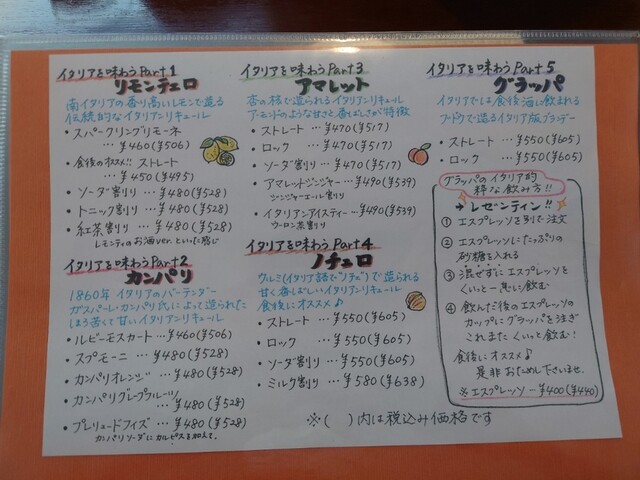 イタリアを味わうPart1
リモンチェロ
南イタリアの香り高いレモンで造る
伝統的なイタリアンリキュール
・スパークリングリモーネ
…¥460(¥506)
・食後のオススメ!! ストレート
…¥450(¥495)
・ソーダ割り …¥480(¥528)
・トニック割り …¥480(¥528)
・紅茶割り …¥480(¥528)
レモンティのお酒ver.といった感じ
イタリアを味わうPart2
カンパリ
1860年イタリアのバーテンダー
ガスパーレ・カンパリ氏によって造られた
ほろ苦くて甘いイタリアンリキュール
・ルビーモスカート…¥460(¥506)
・スプモーニ …¥480(¥528)
・カンパリオレンジ …¥480(¥528)
・カンパリグレープフルーツ
…¥480(¥528)
・プレリュードフィズ…¥480(¥528)
カンパリソーダにカルピスを加えて。
イタリアを味わうPart3
アマレット
杏の核で造られるイタリアンリキュール
アーモンドのような甘さと香ばしさが特徴
・ストレート …¥470(¥517)
・ロック …¥470(¥517)
・ソーダ割り …¥470(¥517)
・アマレットジンジャー…¥490(¥539)
ジンジャーエール割り
・イタリアンアイスティー…¥490(¥539)
ウーロン茶割り
イタリアを味わうPart4
ノチェロ
クルミ(イタリア語で"ノチェ")で造られる
甘く香ばしいイタリアンリキュール
食後にオススメ♪
・ストレート …¥550(¥605)
・ロック …¥550(¥605)
・ソーダ割り …¥550(¥605)
・ミルク割り …¥580(¥638)
イタリアを味わうPart5
グラッパ
イタリアでは食後酒に飲まれる
ブドウで造るイタリア版ブランデー
・ストレート …¥550(¥605)
・ロック …¥550(¥605)
グラッパのイタリア的
粋な飲み方!!
→レゼンティン!!
① エスプレッソを別で注文
② エスプレッソにたっぷりの
砂糖を入れる
③ 混ぜずにエスプレッソを
くいっと一思いに飲む
④ 飲んだ後のエスプレッソの
カップにグラッパをそそぎ
これまたくいっと飲む!
食後にオススメ♪
是非おためし下さいませ。
※エスプレッソ…¥400(¥440)
※( )内は税込み価格です